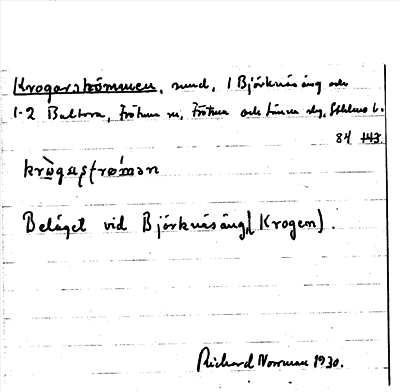 Krogarströmmen, sund, 1 Björknäsäng och
1-2 Baltora, Frötuna sn, Frötuna och Länna skg, Sthlms l.
84 143.
Beläget vid Björknäsäng (Krogen).
Richard Norrman 1930.